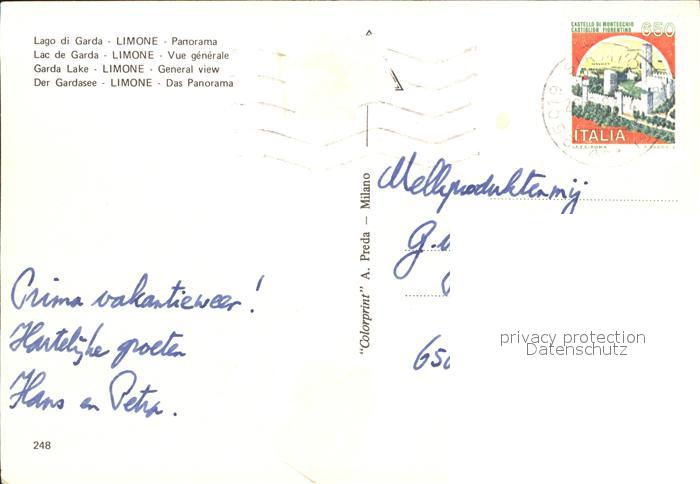 Lago di Garda - LIMONE - Panorama
Lac de Garda - LIMONE - Vue générale
Garda Lake - LIMONE - General view
Der Gardasee - LIMONE - Das Panorama
CASTELLO DI MONTECCHIO
CASTIGLION FIORENTINO
650
ITALIA
Melkproduktenmij
G.
650
privacy protection
Datenschutz
"Colorprint" A. Preda — Milano
Prima vakantieweer!
Hartelijke groeten
Hans en Petra.
248